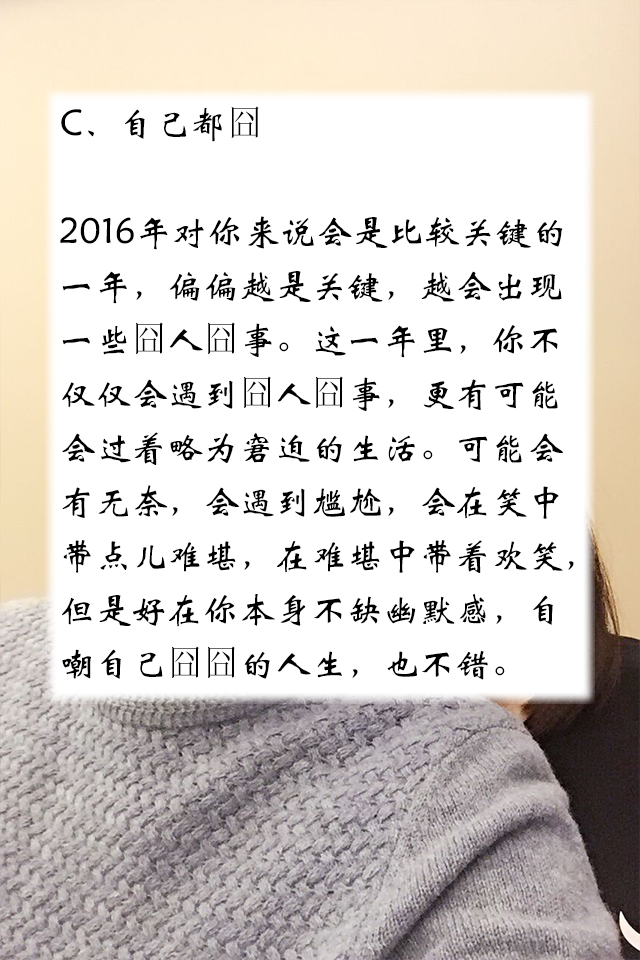 C、自己都囧
2016年对你来说会是比较关键的
一年，偏偏越是关键，越会出现
一些囧人囧事。这一年里，你不
仅仅会遇到囧人囧事，更有可能
会过着略为窘迫的生活。可能会
有无奈，会遇到尴尬，会在笑中
带点儿难堪，在难堪中带着欢笑，
但是好在你本身不缺幽默感，自
嘲自己囧囧的人生，也不错。